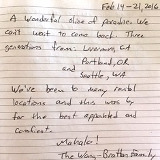 Feb 14-21, 2016
A Wonderful slice of paradise. We
can't wait to come back. Three
generations from: Livermore, CA
Portland, OR
and
Seattle, WA
We've been to many rental
locations and this was by
far the best appointed and
comfiest.
Mahalo!
The Wong-Bratton Family